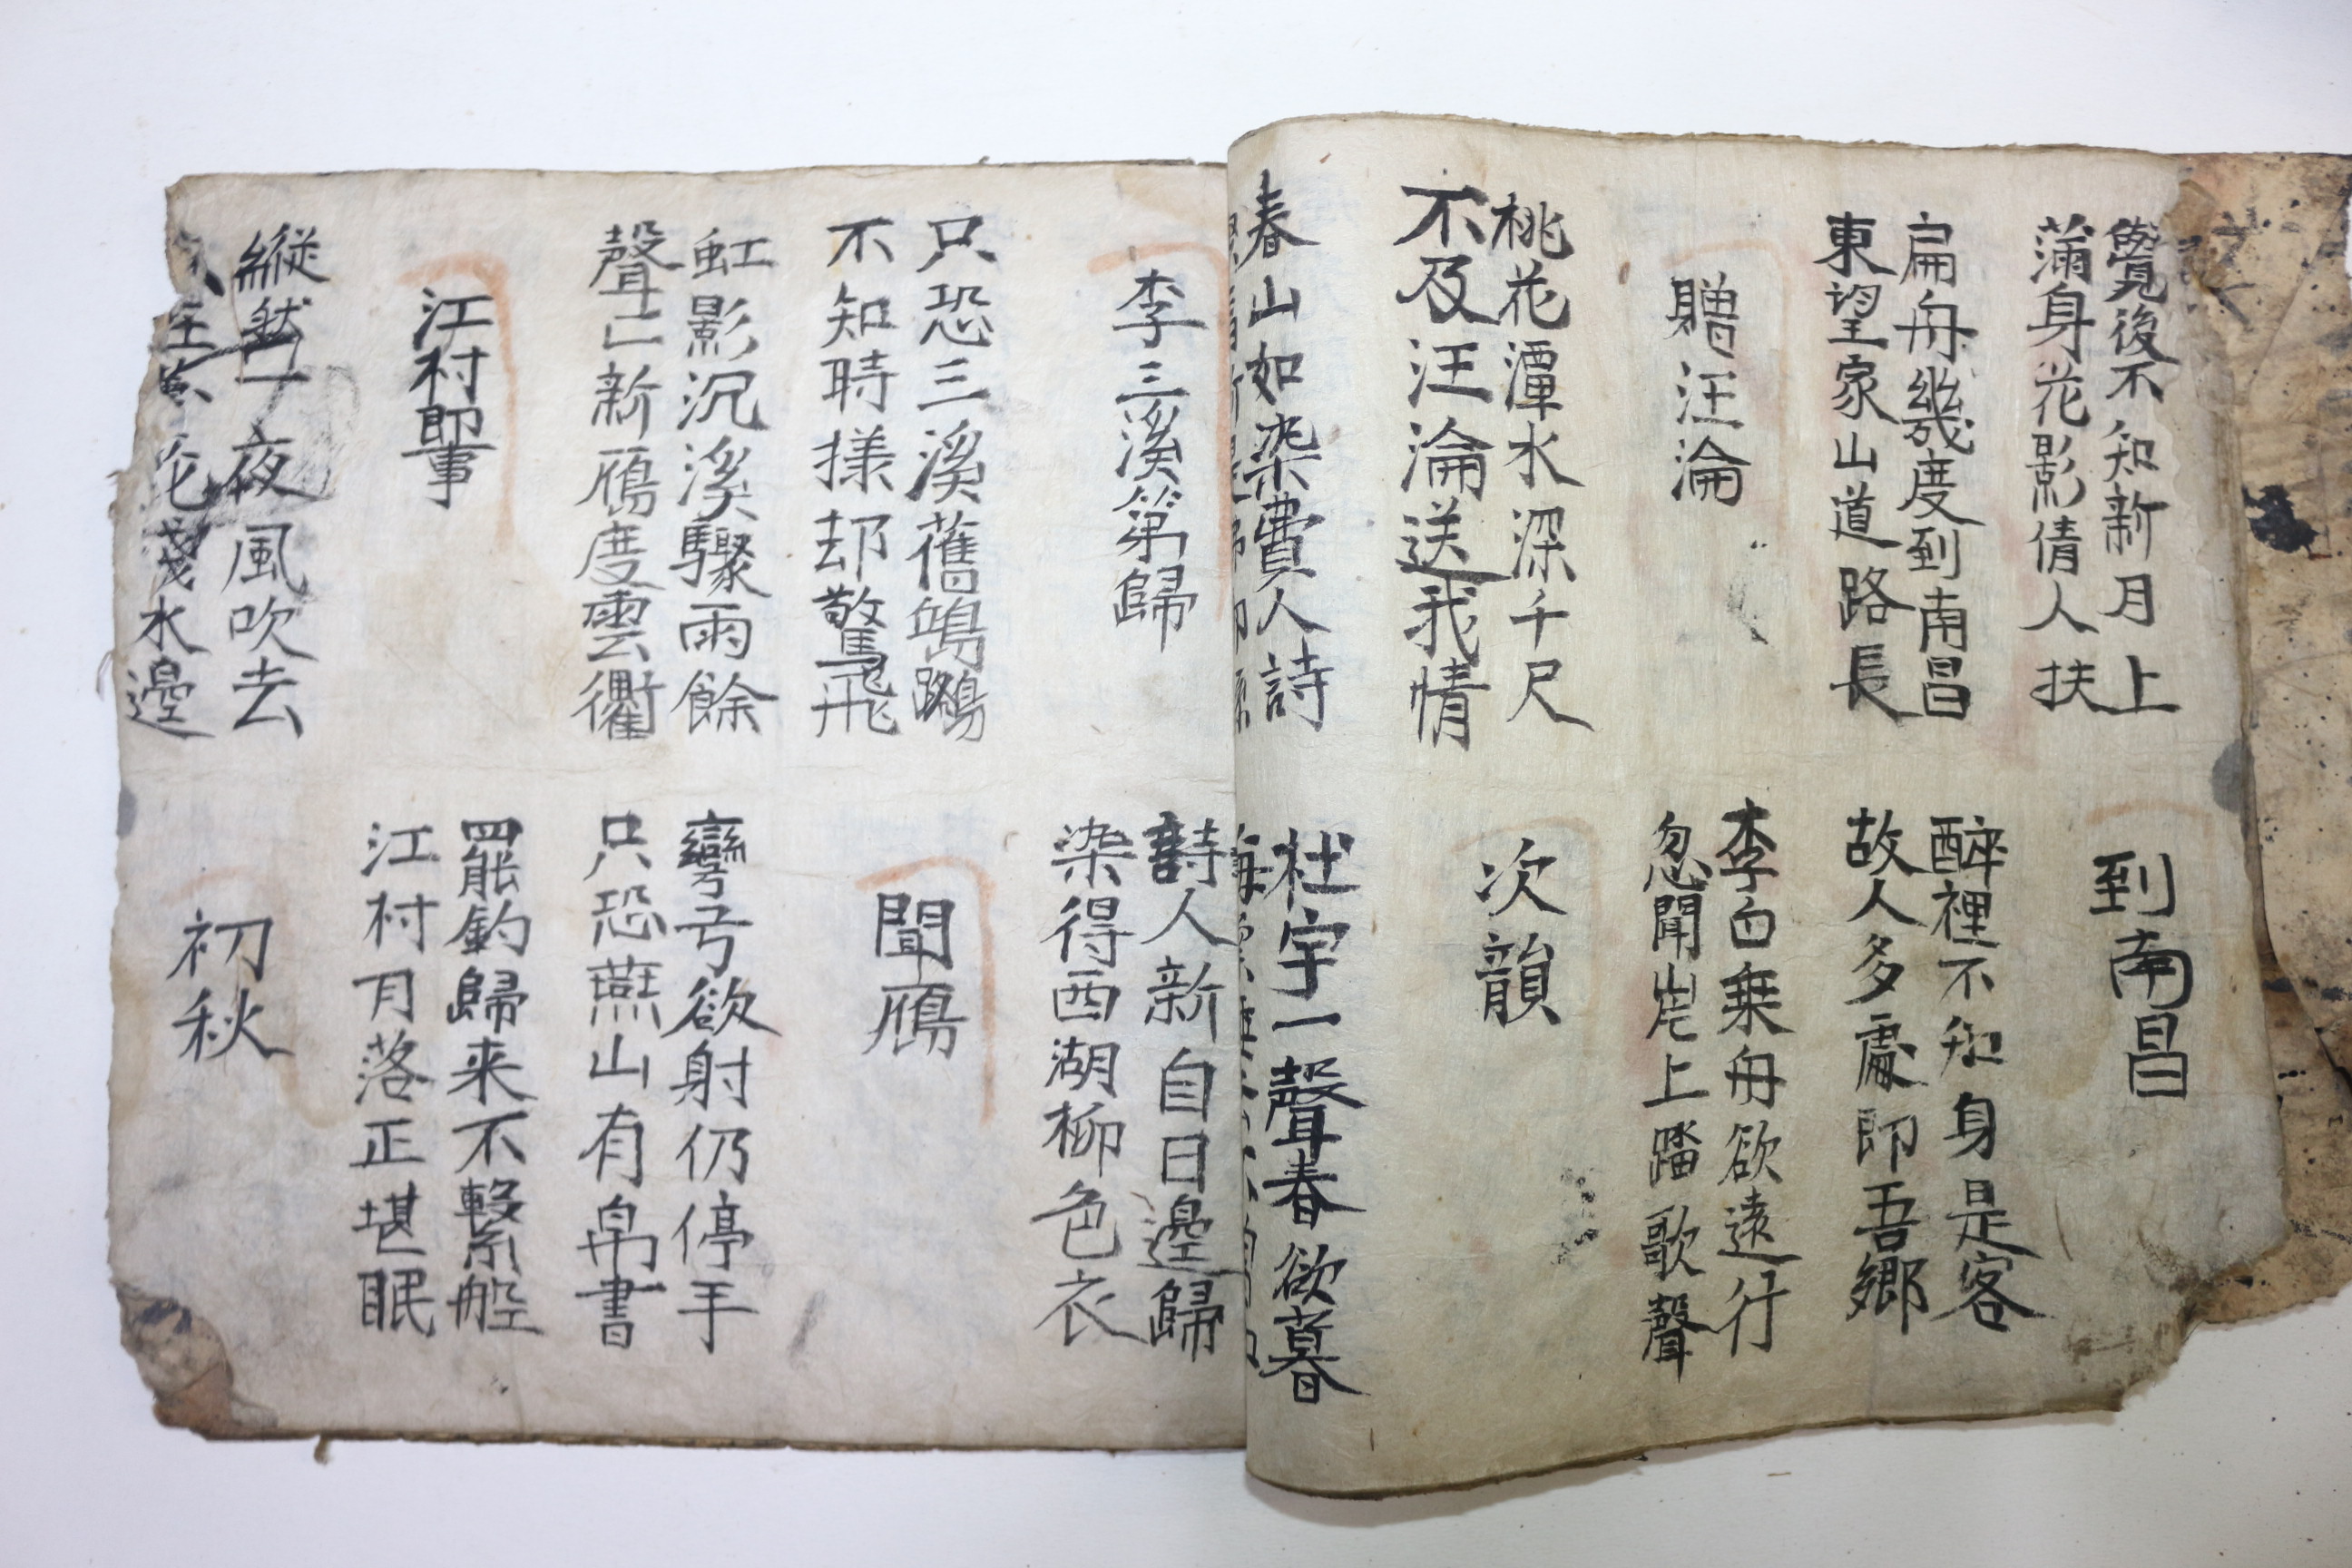 覺後不知新月上
滿身花影倩人扶
到南昌
扁舟幾度到南昌
東望家山道路長
醉裡不知身是客
故人多處即吾鄉
贈汪淪
李白乗舟欲遠行
忽聞岸上踏歌聲
桃花潭水深千尺
不及汪淪送我情
次韻
春山如染費人詩
杜宇一聲春欲暮
李三溪第歸
詩人新自日邊歸
染得西湖柳色衣
只恐三溪舊鷗
不知時様却驚飛
聞鴈
虹影沉溪驟雨餘
聲〻新鴈度雲衢
彎弓欲射仍停手
只恐燕山有帛書
江村即事
罷釣歸来不繫舡
江村月落正堪眠
縱然一夜風吹去
花淺水邊
初秋